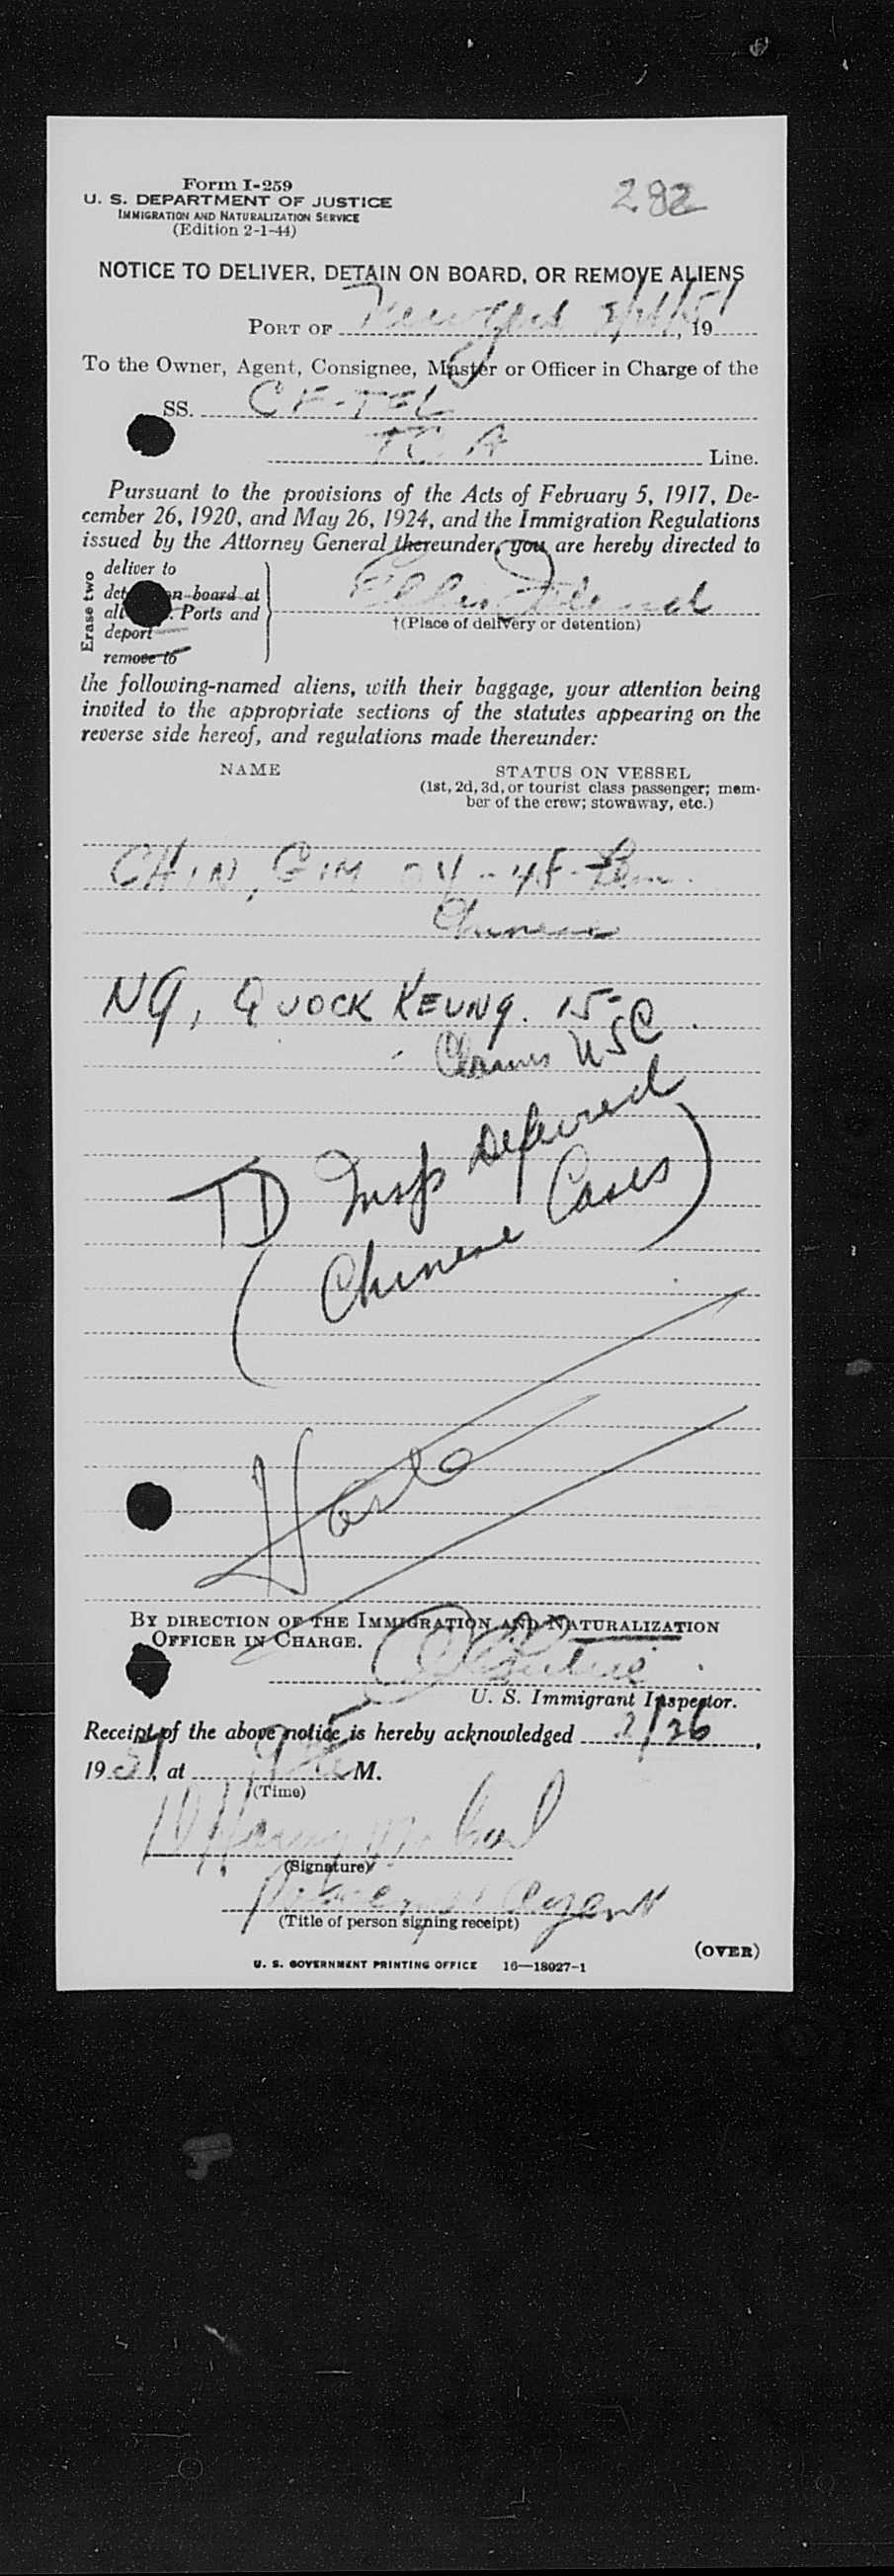 Form I-259
U. S. DEPARTMENT OF JUSTICE
IMMIGRATION AND NATURALIZATION SERVICE
(Edition 2-1-44)
282
NOTICE TO DELIVER, DETAIN ON BOARD, OR REMOVE ALIENS
PORT OF New York , 19
To the Owner, Agent, Consignee, Master or Officer in Charge of the
SS. CF-TEL
TCA Line.
Pursuant to the provisions of the Acts of February 5, 1917, De-
cember 26, 1920, and May 26, 1924, and the Immigration Regulations
issued by the Attorney General thereunder, you are hereby directed to
Erase two
deliver to
det n board at
all . Ports and
deport
remove to
Ellis Island
†(Place of delivery or detention)
the following-named aliens, with their baggage, your attention being
invited to the appropriate sections of the statutes appearing on the
reverse side hereof, and regulations made thereunder:
NAME
STATUS ON VESSEL
(1st, 2d, 3d, or tourist class passenger; mem-
ber of the crew; stowaway, etc.)
CHIN, GIM
Chinese
NG, QUOCK KEUNG. 15-
Claims USC
TD Insp Deferred
(Chinese Cases)
BY DIRECTION OF THE IMMIGRATION AND NATURALIZATION
OFFICER IN CHARGE.
U. S. Immigrant Inspector.
Receipt of the above notice is hereby acknowledged 2/26 ,
1951, at M.
(Time)
(Signature)
Agent
(Title of person signing receipt)
(OVER)
U. S. GOVERNMENT PRINTING OFFICE 16—18027-1